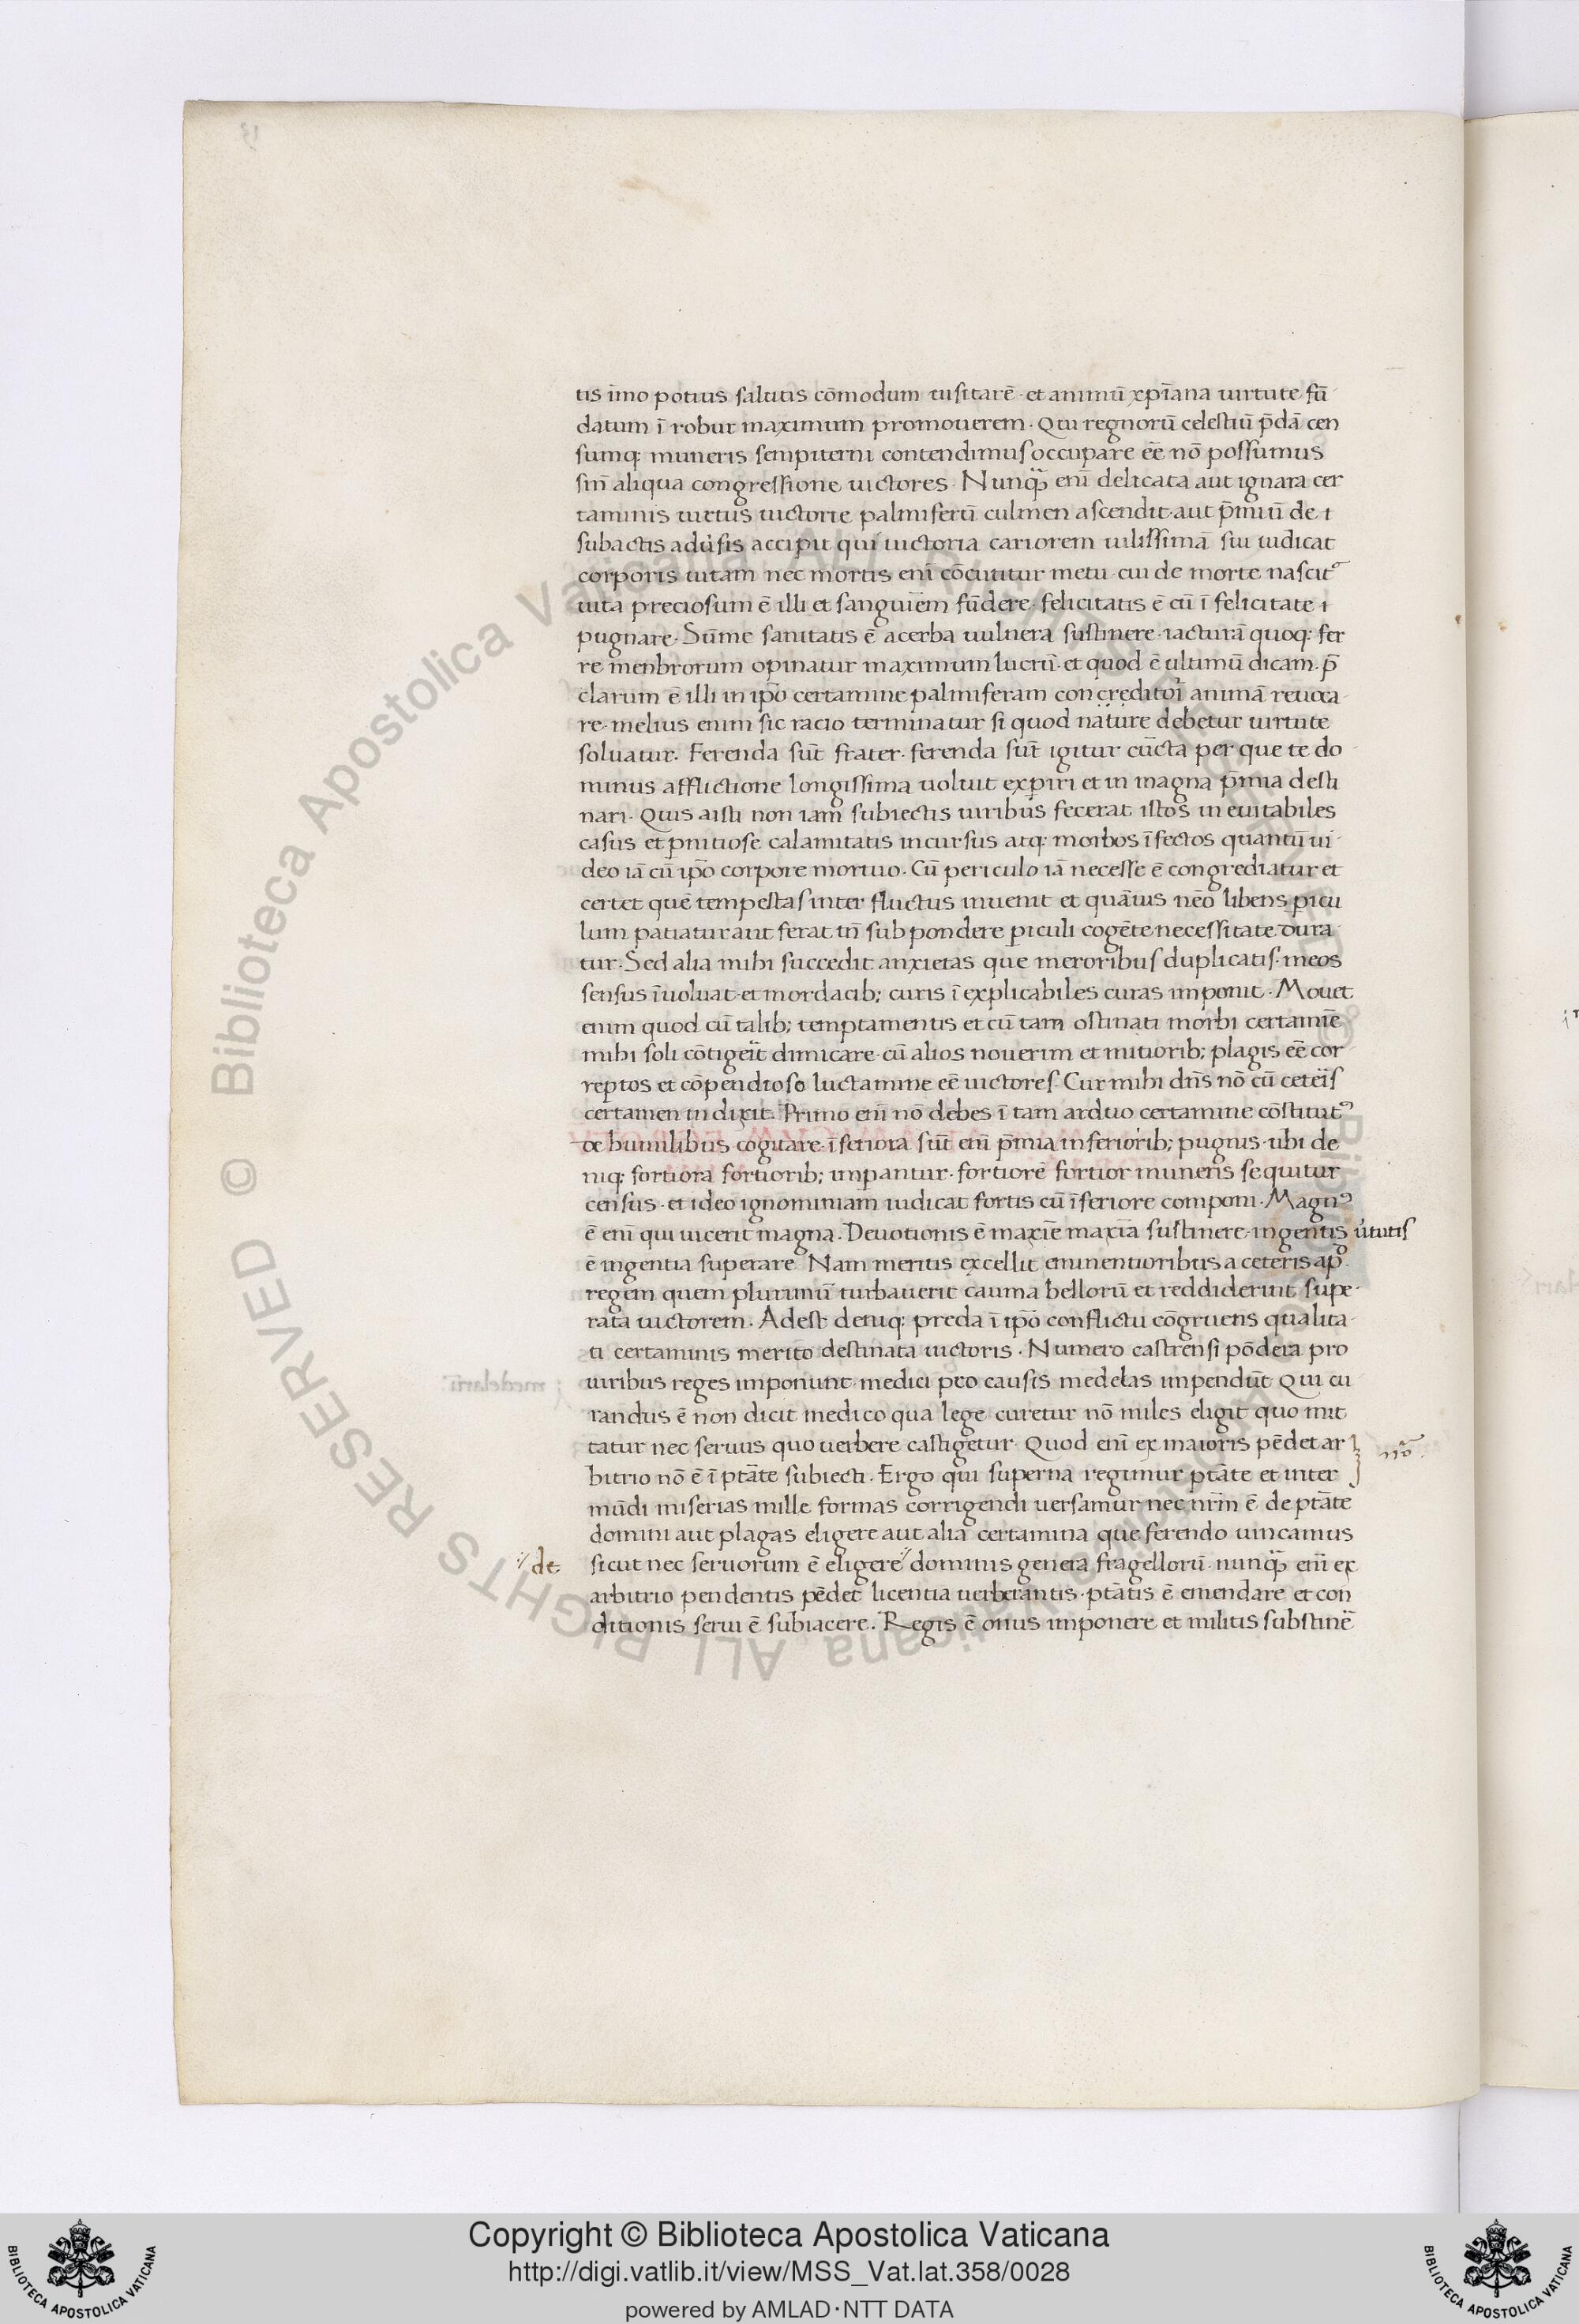 tis imo potius salutis cōmodum uisitarē · et animū xp̄iana uirtute fū
datum ī robur maximum promouerem · Qui regnorū celestiū p̄dā cen
sumq; muneris sempiterni contendimus occupare eē nō possumus
sin̄ aliqua congressione uictores · Nunq̄ᵃ enī delicata aut ignara cer
taminis uirtus uictorie palmiferū culmen ascendit · aut p̄miū de
subactis adūsis accipit qui uictoria cariorem uilissimā sui iudicat
corporis uitam nec mortis enī cōcutitur metu · cui de morte nascit᷑
uita preciosum ē illi et sanguiēm fūdere · felicitatis ē cū ī felicitate
pugnare · Sūme sanitatis ē acerba uulnera sustinere · iacturā quoq; fer
re menbrorum opinatur maximum lucrū · et quod ē ultimū dicam · p̄
clarum ē illi in ip̄o certamine palmiferam con creditori animā reuoca
re · melius enim sic racio terminatur si quod nature debetur uirtute
soluatur · Ferenda sūt frater · ferenda sūt igitur cūcta per que te do
minus afflictione longissima uoluit exp̱iri et in magna p̄mia desti
nari · Quis aisti non iam subiectis uiribus fecerat istos in euitabiles
casus et p̱nitiose calamitatis incursus atq; morbos īfectos quantū ui
deo iā cū ip̄o corpore mortuo · Cū periculo iā necesse ē congrediatur et
certet quē tempestas inter fluctus inuenit et quāuis nēo libens p̱icu
lum patiatur aut ferat tn̄ sub pondere p̱iculi cogēte necessitate dura
tur · Sed alia mihi succedit anxietas que meroribus duplicatis · meos
sensus īuoluat · et mordacib; curis ī explicabiles curas imponit · Mouet
enim quod cū talib; temptamentis et cū tam ostinati morbi certamīe
mihi soli cōtigeīt dimicare · cū alios nouerim et mitiorib; plagis eē cor
reptos et cōpendioso luctamine eē uictores · Cur mihi dn̄s nō cū ceteīs
certamen indixit · Primo enī nō debes ī tam arduo certamine cōstitut᷒
de humilibus cogitare · īferiora sūt enī p̄mia inferiorib; pugnis · ubi de
niq; fortiora fortiorib; imp̱antur · fortiorē fortior muneris sequitur
census · et ideo ignominiam iudicat fortis cū īferiore componi · Magn᷒
ē enī qui uicerit magna · Deuotionis ē maxīe maxīa sustinere · ingentis ùtutis
ē ingentia superare Nam meritis excellit eminentioribus a ceteris ap᷒
regem quem plurimū turbauerit cauma bellorū et reddiderint supe
rata uictorem · Adest deniq; preda ī ip̄o conflictu cōgruens qualita
ti certaminis merito destinata uictoris · Numero castrensi pōdera pro
uiribus reges imponunt · medici pro causis medelas impendūt Qui cu
randus ē non dicit medico qua lege curetur nō miles eligit quo mit
tatur nec seruus quo uerbere castigetur · Quod enī ex maioris pēdet ar
bitrio nō ē ī ptāte subiecti · Ergo qui superna regimur ptāte et inter
mūdi miserias mille formas corrigendi uersamur nec nr̄m ē de ptāte
domini aut plagas eligere aut alia certamina que ferendo uincamus
de sicut nec seruorum ē eligere dominis genera fragellorū · nunq̄ᵃ enī ex
arbitrio pendentis pēdet licentia uerberantis · ptātis ē emendare et con
ditionis serui ē subiacere · Regis ē onus imponere et militis substinē
Copyright © Biblioteca Apostolica Vaticana
http://digi.vatlib.it/view/MSS_Vat.lat.358/0028
powered by AMLAD·NTT DATA
BIBLIOTECA APOSTOLICA VATICANA
BIBLIOTECA APOSTOLICA VATICANA
© Biblioteca Apostolica Vaticana ALL RIGHTS RESERVED © Biblioteca Apostolica Vaticana ALL RIGHTS RESERVED